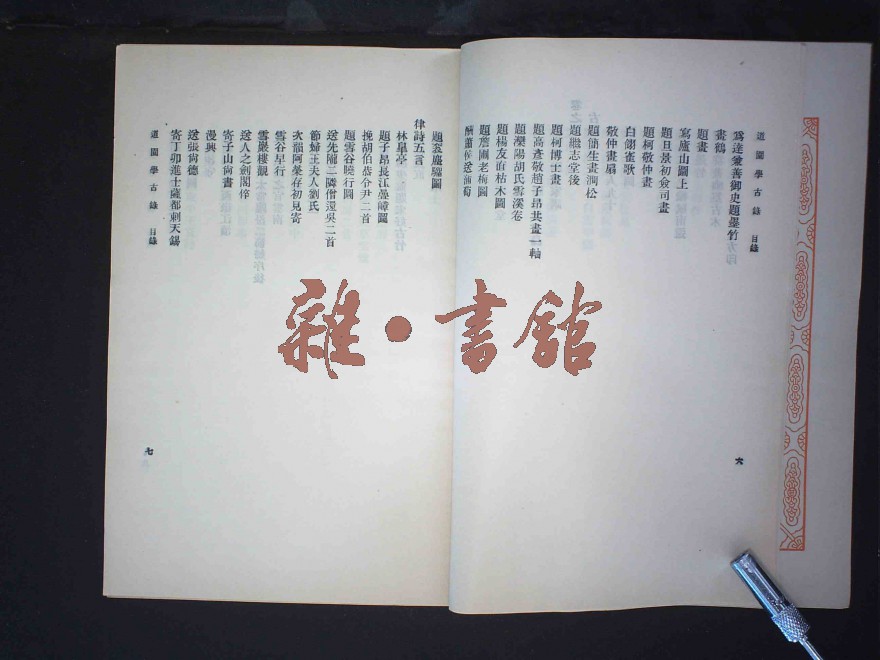 道園學古錄 目錄
爲達兼善御史題墨竹
畫鶴
題畫
寫廬山圖上
題旦景初僉司畫
題柯敬仲畫
白翎雀歌
敬仲畫扇
題簡生畫澗松
題繼志堂後
題柯博士畫
題高彥敬趙子昂共畫一軸
題灤陽胡氏雪溪卷
題楊友直枯木圖
題詹圃老梅圖
酬蕭侯送蒲萄
六
題袞塵騮圖
律詩五言
林皐亭
題子昂長江疊嶂圖
挽胡伯恭令尹二首
題雲谷曉行圖
送先隴二隣僧還吳二首
節婦王夫人劉氏
次韻阿榮存初見寄
雪谷早行
雪巖樓觀
送人之劍閣倅
寄子山尙書
漫興
送張尙德
寄丁卯進士薩都剌天錫
道園學古錄 目錄
七
雜·書館